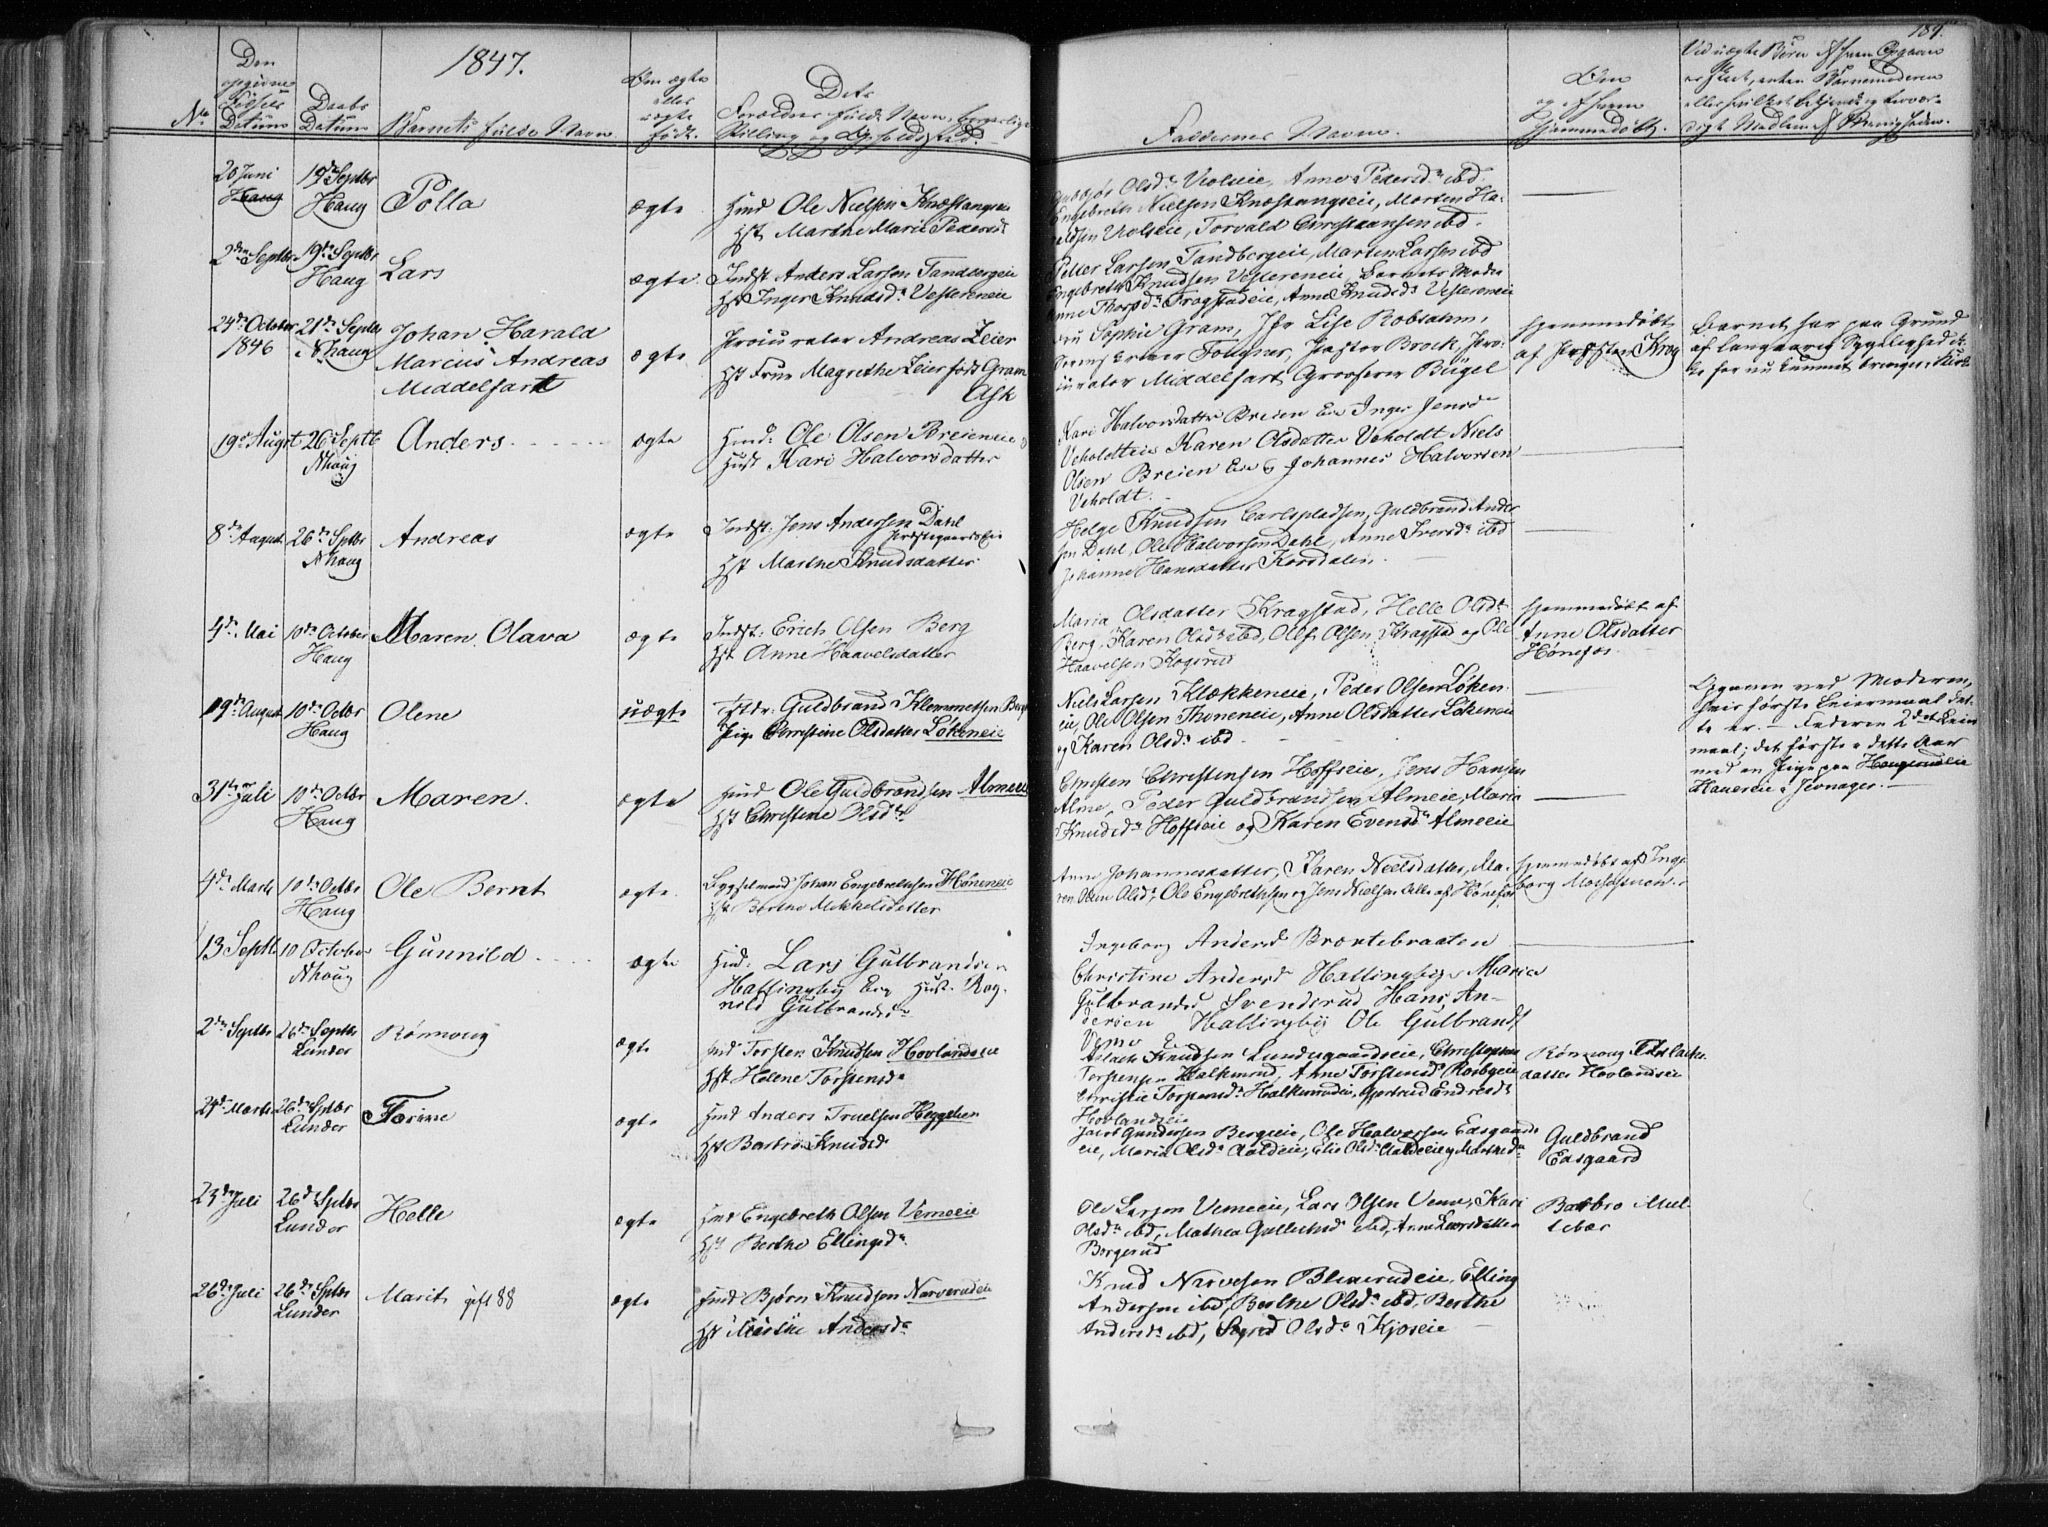 1847.
184.
No
Den opgivne Fødsels Datum
Daabs Datum
Barnets fulde Navn.
Om ægte eller uægte født.
Dets Forældres fulde Navn, borgerlige Stilling og Opholdssted.
Faddernes Navne.
Om og af hvem hjemmedøbt.
Ved uægte Børn
20 Juni
Haug
19de Septbr
Haug
Polla
ægte
Hmd Ole Nielsen Knæstangeie
Hst Marthe Marie Pedersd
Olsd. Violseie, Anne Pedersd. ibd.
Engebreth Nielsen Knæstangseie, Morten Ha-
Violseie, Torvald Christiansen ibd.
2den Septbr
19de Septbr
Haug
Lars
ægte
Indst Anders Larsen Tandbergeie
Hst Inger Knudsd. Vestereneie
Petter Larsen Tandbergeie, Martin Larsen ibd
Engebreth Knudsen Vestereneie, Barnets Moder
Anne Thorsd. Frogstadeie, Anne Knudsd. Vestereneie
24de October
1846
21de Septbr
Nhaug
Johan Harald
Marcus Andreas
Middelfart
ægte
Procurator Andreas Leier
Hst Frue Magrethe Leier født Gram
Ask
Sophie Gram, Jfr Lise Robsahm,
Pastor Brock, Pro-
curator Middelfart Grosserer Bügel
hjemmedøbt
af Præsten Krog
Barnet har paa Grund
af langvarig Sygelighed ik-
ke før nu kunnet bringes i Kirke
19de Augst
26 Septb
Nhaug
Anders
ægte
Hmd: Ole Olsen Breieneie
Hust Kari Halvorsdatter
Kari Halvorsdatter Breien Eie Inger Jensd
Veholdteie Karen Olsdatter Veholdt Niels
Olsen Breien Eie & Johannes Halvorsen
Veholdt.
8de August
26de Sptbr
Nhaug
Andreas
ægte
Indst: Jens Andersen Dahl
Præstegaardseie
Hst Marthe Knudsdatter
Helge Knudsen Carlspladsen, Guldbrand Ander
sen Dahl, Ole Halvorsen Dahl, Anne Iversd. ibd
Johanne Hansdatter Korsdalen.
4de Mai
10de October
Haug
Maren Olava
ægte
Indst: Erich Olsen Berg
Hst Anne Haavelsdatter
Maria Olsdatter Kragstad, Helle Olsd.
Berg, Karen Olsd. ibd, Olf Olsen Kragstad og Ole
Haavelsen Kogsrud
hjemmedøbt af
Anne Olsdatter
Hønefos.
19de August
10de Octbr
Haug
Olene
uægte
Guldbrand Klemmetsen Berg
Pige Christine Olsdatter Lökeneie
Niels Larsen Klækkeneie, Peder Olsen Löken
eie, Ole Olsen Thoneneie, Anne Olsdatter Lökeneie
og Karen Olsd. ibd
Opgaven ved Moderen,
hvis første Leiermaal det-
te er. Faderen 2det Leier
maal; det første i dette Aar
med en Pige paa Haugerudeie
i Jevnager.
31te Juli
10de Octbr
Haug
Maren.
ægte
Hmd Ole Guldbrandsen Almeeie
Hst Christine Olsd.
Christen Christensen Hoffseie, Jens Hansen
Alme, Peder Guldbrandsen Almeie, Maria
Knudsd. Hoffseie og Karen Evensd. Almeeie
4de Marts
10de Octbr
Haug
Ole Bernt
ægte
Bygselmand Johan Engebrethsen Høneneie
Hst Berthe Mikkelsdatter
Anne Johannesdatter, Karen Nielsdatter, Ma-
ren Olsd. Ole Engebrethsen og Jens Nielsen alle af Hønefos
hjemmedøbt af Inge-
borg
13 Septb
10 October
Nhaug
Gunnild
ægte
Hmd: Lars Gulbrandsen
Hallingby Eie Hust: Rag-
nild Gulbrandsd
Ingeborg Andersd Brootebraaten
Christine Andersd Hallingby Maria
Gulbrandsd Svendsrud Hans An-
dersen Hallingby Ole Gulbrands
Veme E
2den Septbr
26de Septbr
Lunder
Rønnoug
ægte
Hmd Torsten Knudsen Hovlandseie
Hst Helene Torstensd
Aslach Knudsen Lundesgaardseie, Christopher
Torstensen Halkinrud, Anne Torstensd
Christie Torstensd. Halkinrudeie, Gjertrud Endresd.
Hovlandseie
Rønnoug
datter Hovlandseie
24de Marts
26de Sptbr
Lunder
Torine
ægte
Hmd Anders Truelsen Heggelien
Hst Barbro Knudsd
Jacob Gundersen Bergseie, Ole Halvorsen Edsgaards
eie, Maria Olsd. Aaldeie, Elie Olsd.
Guldbrand
Edsgaard
23de Juli
26de Sptbr
Lunder
Helle
ægte
Hmd Engebreth Olsen Vemeeie
Hst Berthe Ellingsd.
Ole Larsen Vemeeie, Lars Olsen Veme, Kari
Olsd. ibd, Mathea Gulliksd. ibd, Anne Larsdatter
Borgerud
Barbro Mul-
26de Juli
26de Sptbr
Lunder
Marit gift 88
ægte
Hmd Bjørn Knudsen Narverudeie
Hst Marthe Andersd.
Knud Narvesen Elling
Andersen ibd, Berthe Olsd. ibd, Berthe
Andersd. ibd, Sigrid Olsd. Kjoseie